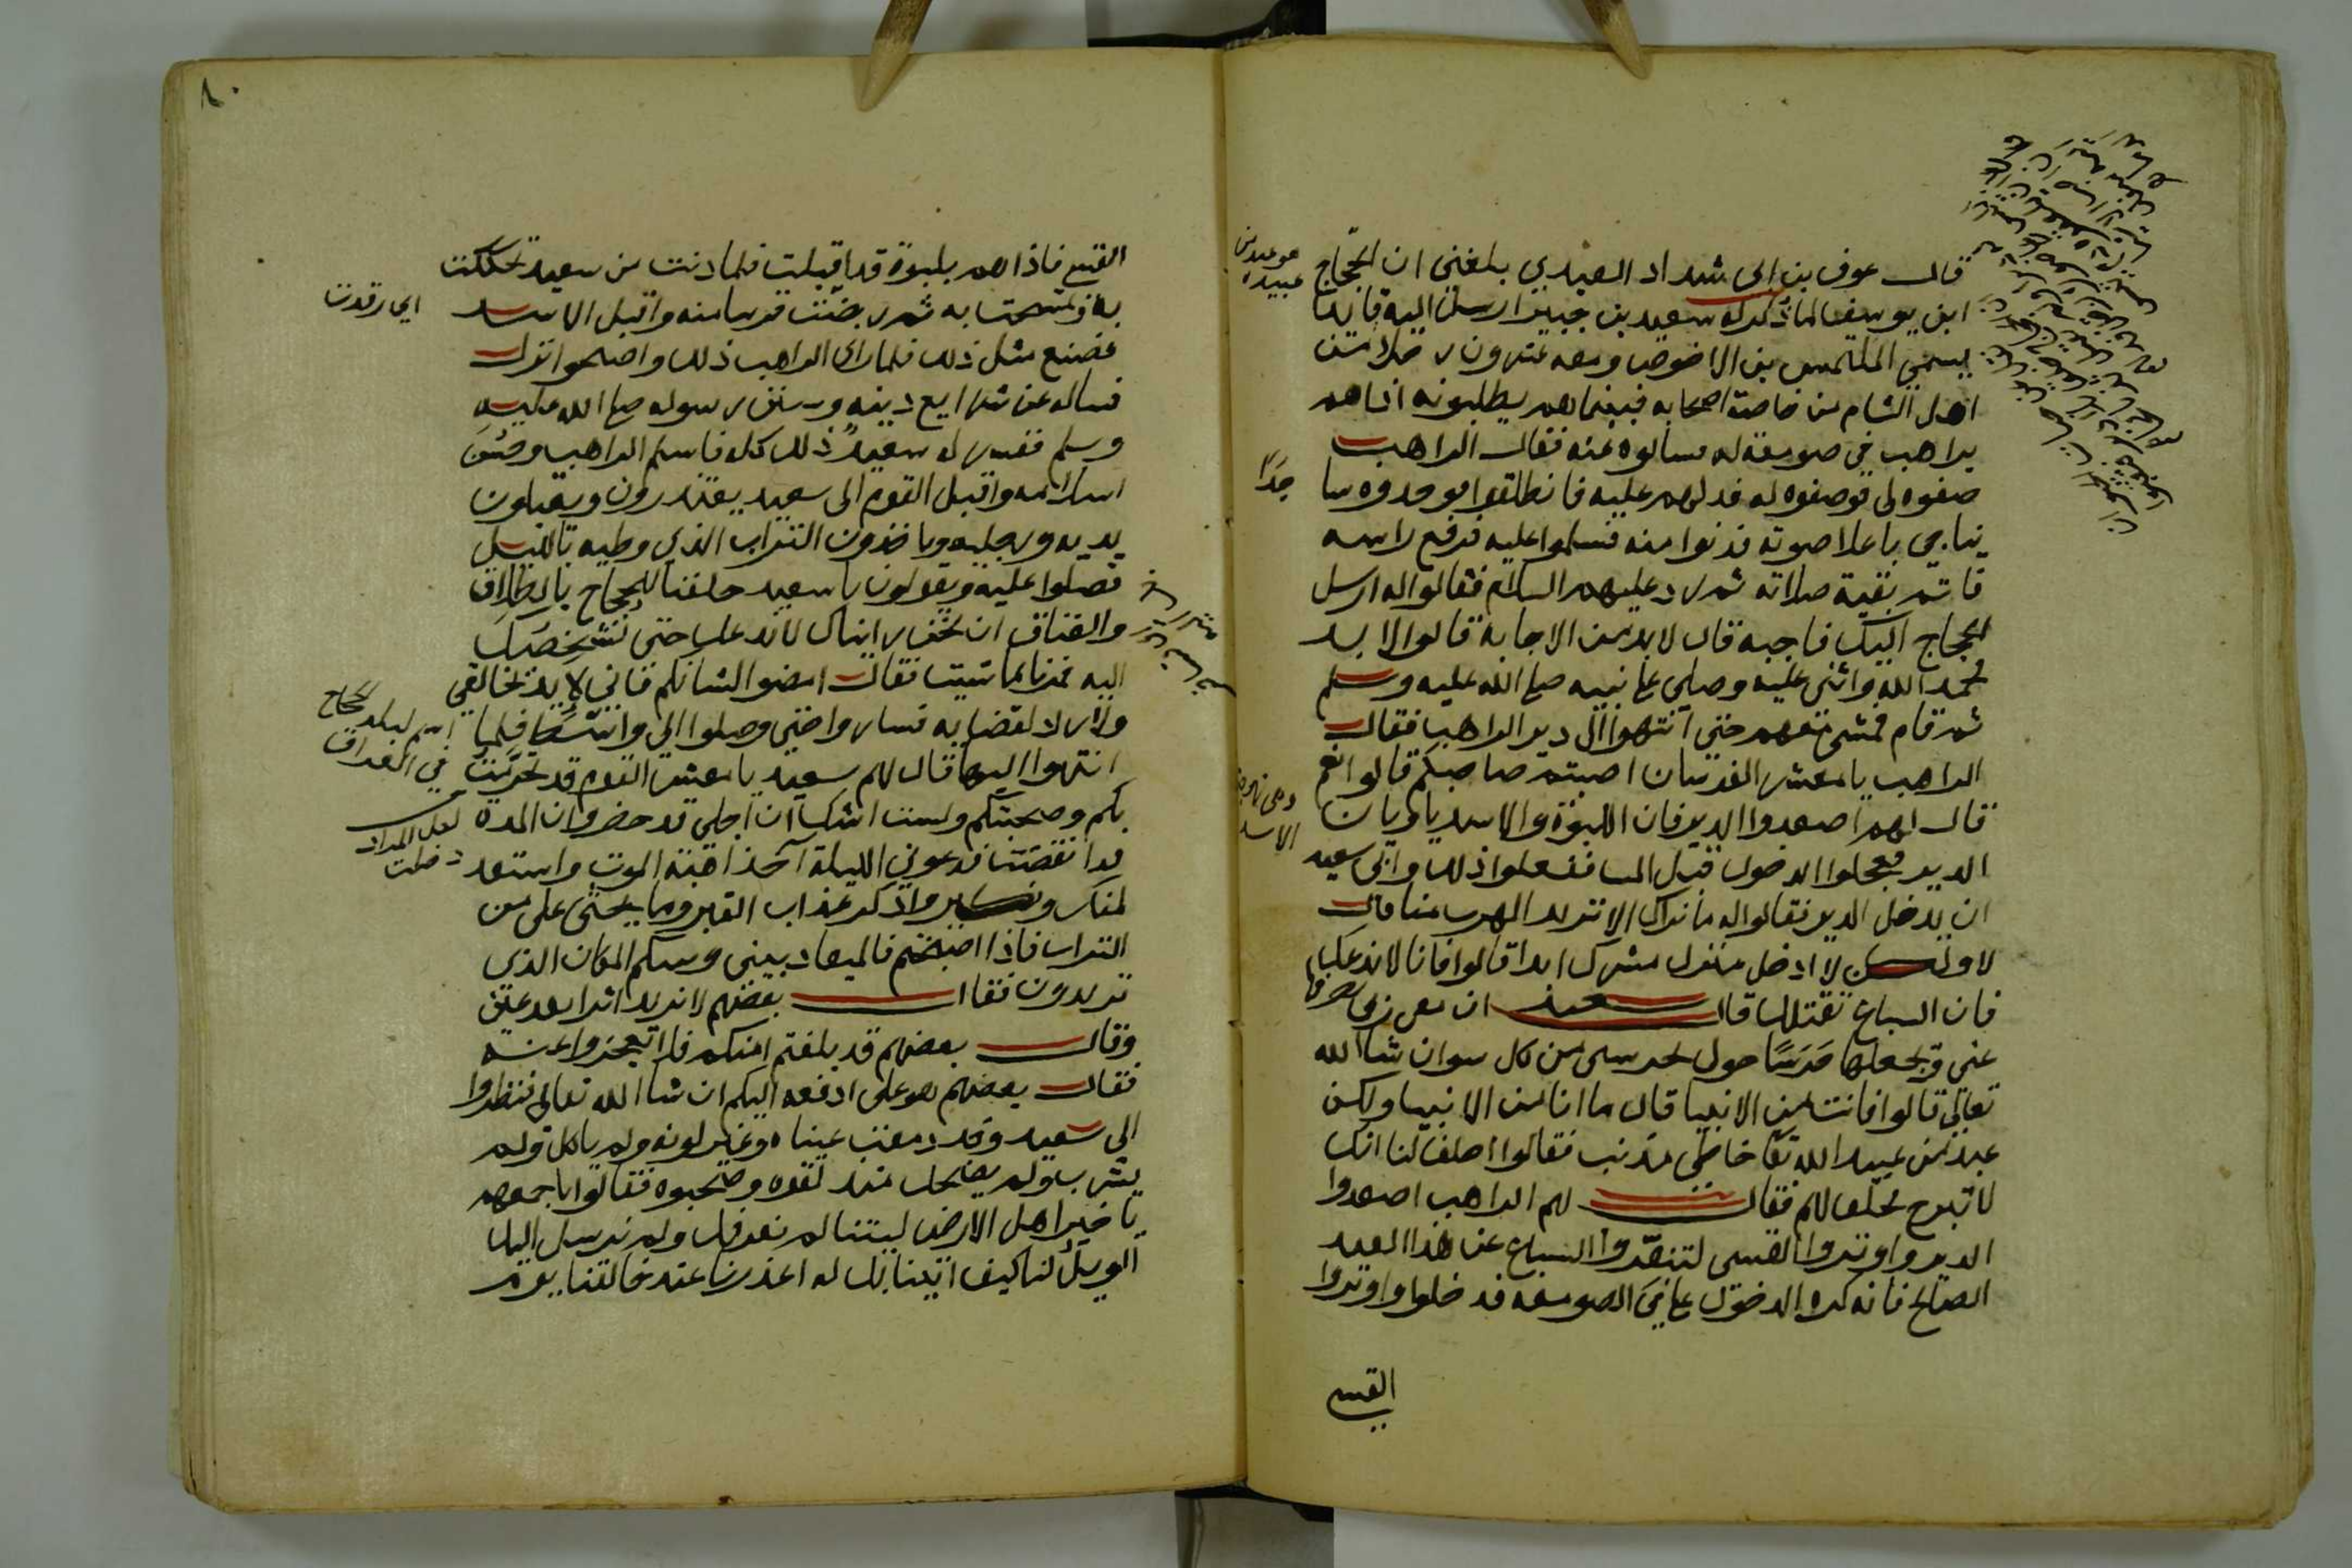 قال عوف بن ابى شداد العبدي بلغني ان الحجاج
ابن يوسف لما ذكر له سعيد بن جبير ارسل اليه قايدا
يسمى الملتمس بن الاخوص ومعه عشرون رجلا من
اهل الشام من خاصة اصحابه فبينما هم يطلبونه اذا هم
براهب في صومعة له فسالوه عنه فقال الراهب
صفوه لى فوصفوه له فدلهم عليه فانطلقوا فوجدوه سا
جدا
يناجي باعلا صوته فدنوا منه فسلموا عليه فرفع راسه
فاتم بقية صلاته ثم رد عليهم السلام فقالوا له ارسل
الحجاج اليك فاجبه قال لابد من الاجابة قالوا لا بد
فحمد الله واثنى عليه وصلى على نبيه صلى الله عليه وسلم
ثم قام فمشى معهم حتى انتهوا الى دير الراهب فقال
الراهب يا معشر الفرسان اصبتم صاحبكم قالوا نعم
قال لهم اصعدوا الدير فان اللبوة والاسد ياويان
الدير فعجلوا الدخول قبل المسا ففعلوا ذلك وابى سعيد
ان يدخل الدير فقالوا له ما نراك الا تريد الهرب منا قال
لا ولكن لا ادخل منزل مشرك ابدا قالوا فانا لا ندعك
فان السباع تقتلك قال سعيد ان معى ربى يصرفها
عنى ويجعلها حرسا حولى تحرسنى من كل سو ان شا الله
تعالى قالوا فانت من الانبيا قال ما انا من الانبيا ولكن
عبد من عبيد الله تعا خاطى مذنب فقالوا احلف لنا انك
لا تبرح فحلف لهم فقال لهم الراهب اصعدوا
الدير واوتروا القسى لتنفروا السباع عن هذا العبد
الصالح فانه كره الدخول على فى الصومعه فدخلوا واوتروا
القسى
القسى فاذا هم بلبوة قد اقبلت فلما دنت من سعيد تحككت
به وتمسحت به ثم ربضت قريبا منه واقبل الاسد
اى رقدت
فصنع مثل ذلك فلما راى الراهب ذلك واصبحوا نزل
فساله عن شرايع دينه وسنن رسوله صلى الله عليه
وسلم ففسر له سعيد ذلك كله فاسلم الراهب وحسن
اسلامه واقبل القوم الى سعيد يعتذرون ويقبلون
يديه ورجليه وياخذون التراب الذي وطيه بالليل
فصلوا عليه ويقولون يا سعيد حلفنا الحجاج بالطلاق
والعتاق ان نحن رايناك لا ندعك حتى نشخصك
اليه فمرنا بما شيت فقال امضوا لشانكم فانى لايذ بخالقى
ولا راد لقضايه فساروا حتى وصلوا الى واسط فلما
اسم لبلد الحجاج في العراق
انتهوا اليها قال لهم سعيد يا معشر القوم قد تحرمت
بكم وصحبتكم ولست اشك ان اجلى قد حضر وان المدة
لعل المراد دخلت
قد انقضت فدعونى الليلة آخذ اهبة الموت واستعد
لمنكر ونكير واذكر عذاب القبر وما يحثى على من
التراب فاذا اصبحتم فالميعاد بينى وبينكم المكان الذى
تريدون فقال بعضهم لا نريد اثرا بعد عين
وقال بعضهم قد بلغتم امنكم فلا تعجزوا عنه
فقال بعضهم هو على ادفعه اليكم ان شا الله تعالى فنظروا
الى سعيد وقد دمعت عيناه وتغير لونه ولم ياكل ولم
يشرب ولم يضحك منذ لقوه وصحبوه فقالوا باجمعهم
يا خير اهل الارض ليتنا لم نعرفك ولم نرسل اليك
الويل لنا كيف ابتلينا بك له اعذرنا عند خالقنا يوم